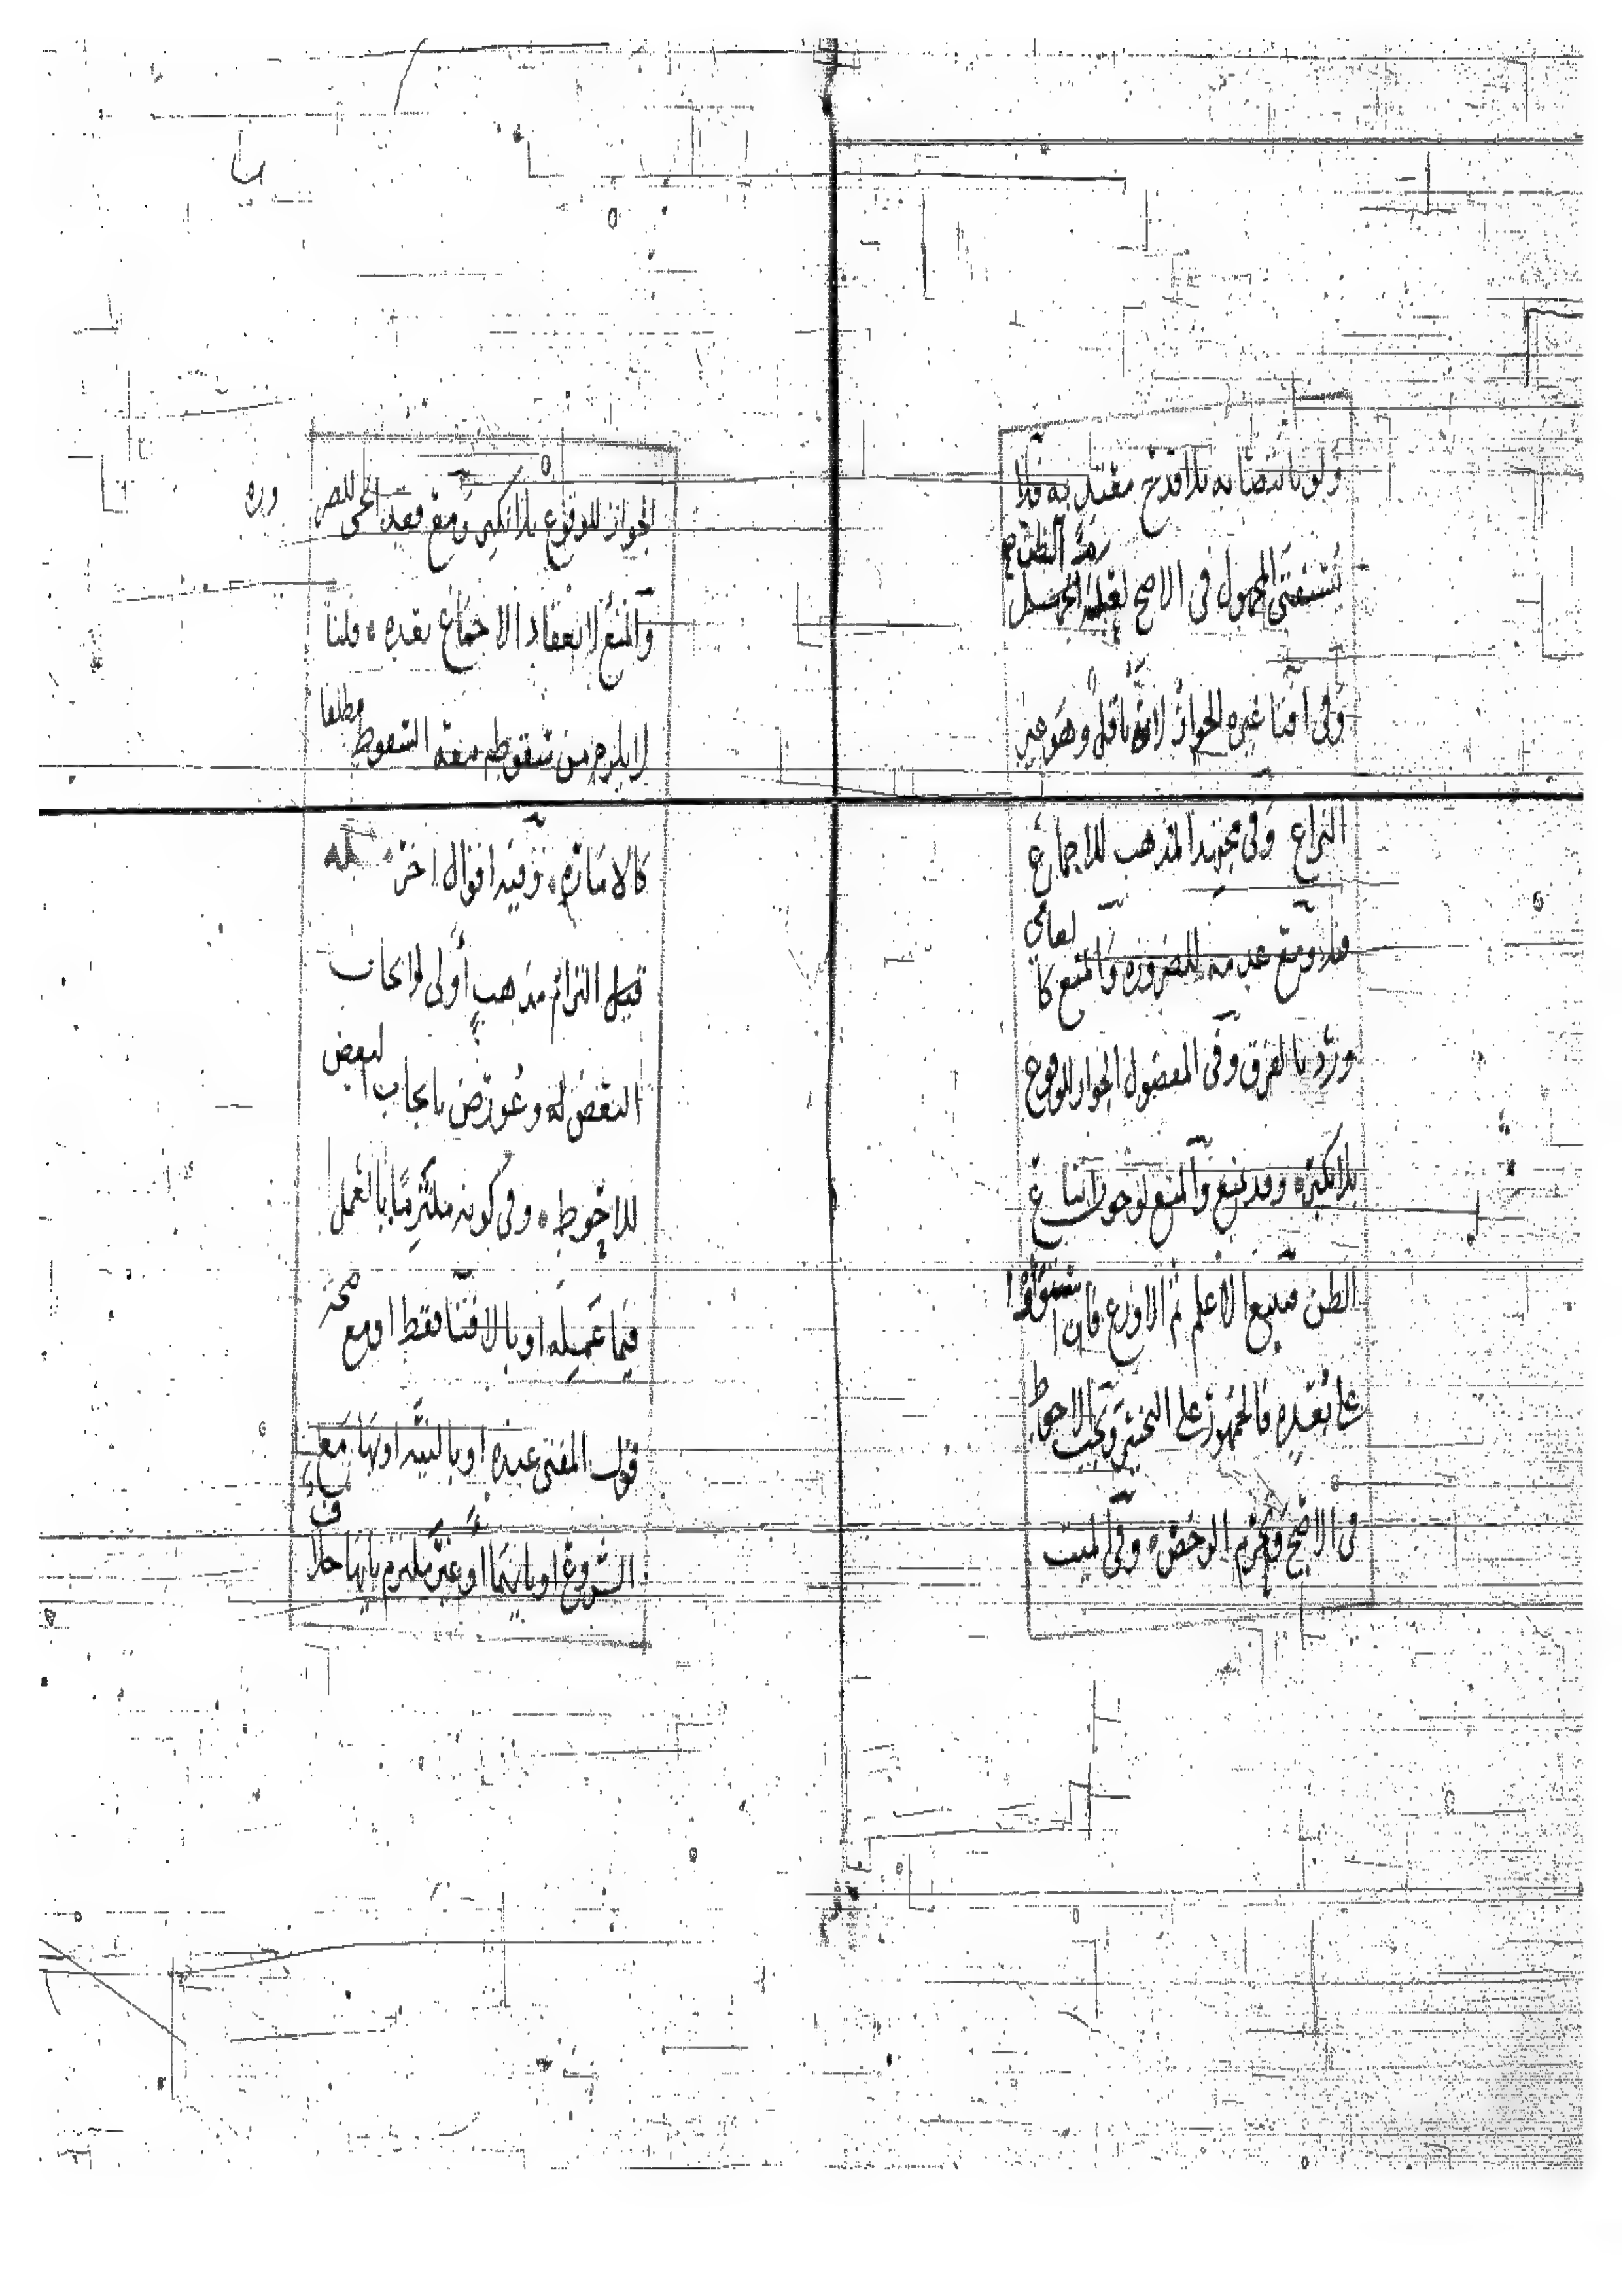 ولو بانتصابه بلا قدح معتد به فلا
يستفتى المجهول فى الاصح لغلبة الجهل
رد الظن
وفى افتا غيره الجواز لانه ناقل وهو غير
النزاع وفى مجتهد المذهب للاجماع
ومع عدمه للضرورة والمنع كا لعامي
ورد بالفرق وفى المفضول الجواز للوقوع
بلا نكير وقد منع والمنع لوجوب اتباع
الظن فيتبع الاعلم ثم الاورع فان استووا
على بعده فالجمهور على التخيير ويجب الاحوط
فى الاصح ويحرم الرخص وفى الميت
الجواز للوقوع بلا نكير ومع فقد الحى للضر
وره
والمنع لانعقاد الاجماع بعده قلنا
لا يلزم من سقوطه معه السقوط مطلقا
كالامارة وفيه اقوال اخر
قيل التزام مذهب أولى لايجاب
البعض له وعورض بايجاب البعض
للاحوط وفى كونه ملتزما بالعمل
فيما عمله او بالافتا فقط او مع صحة
قول المفتى عنده او بالنية او بها مع
الشروع او بايهما او غير ملتزم بايها خلاف